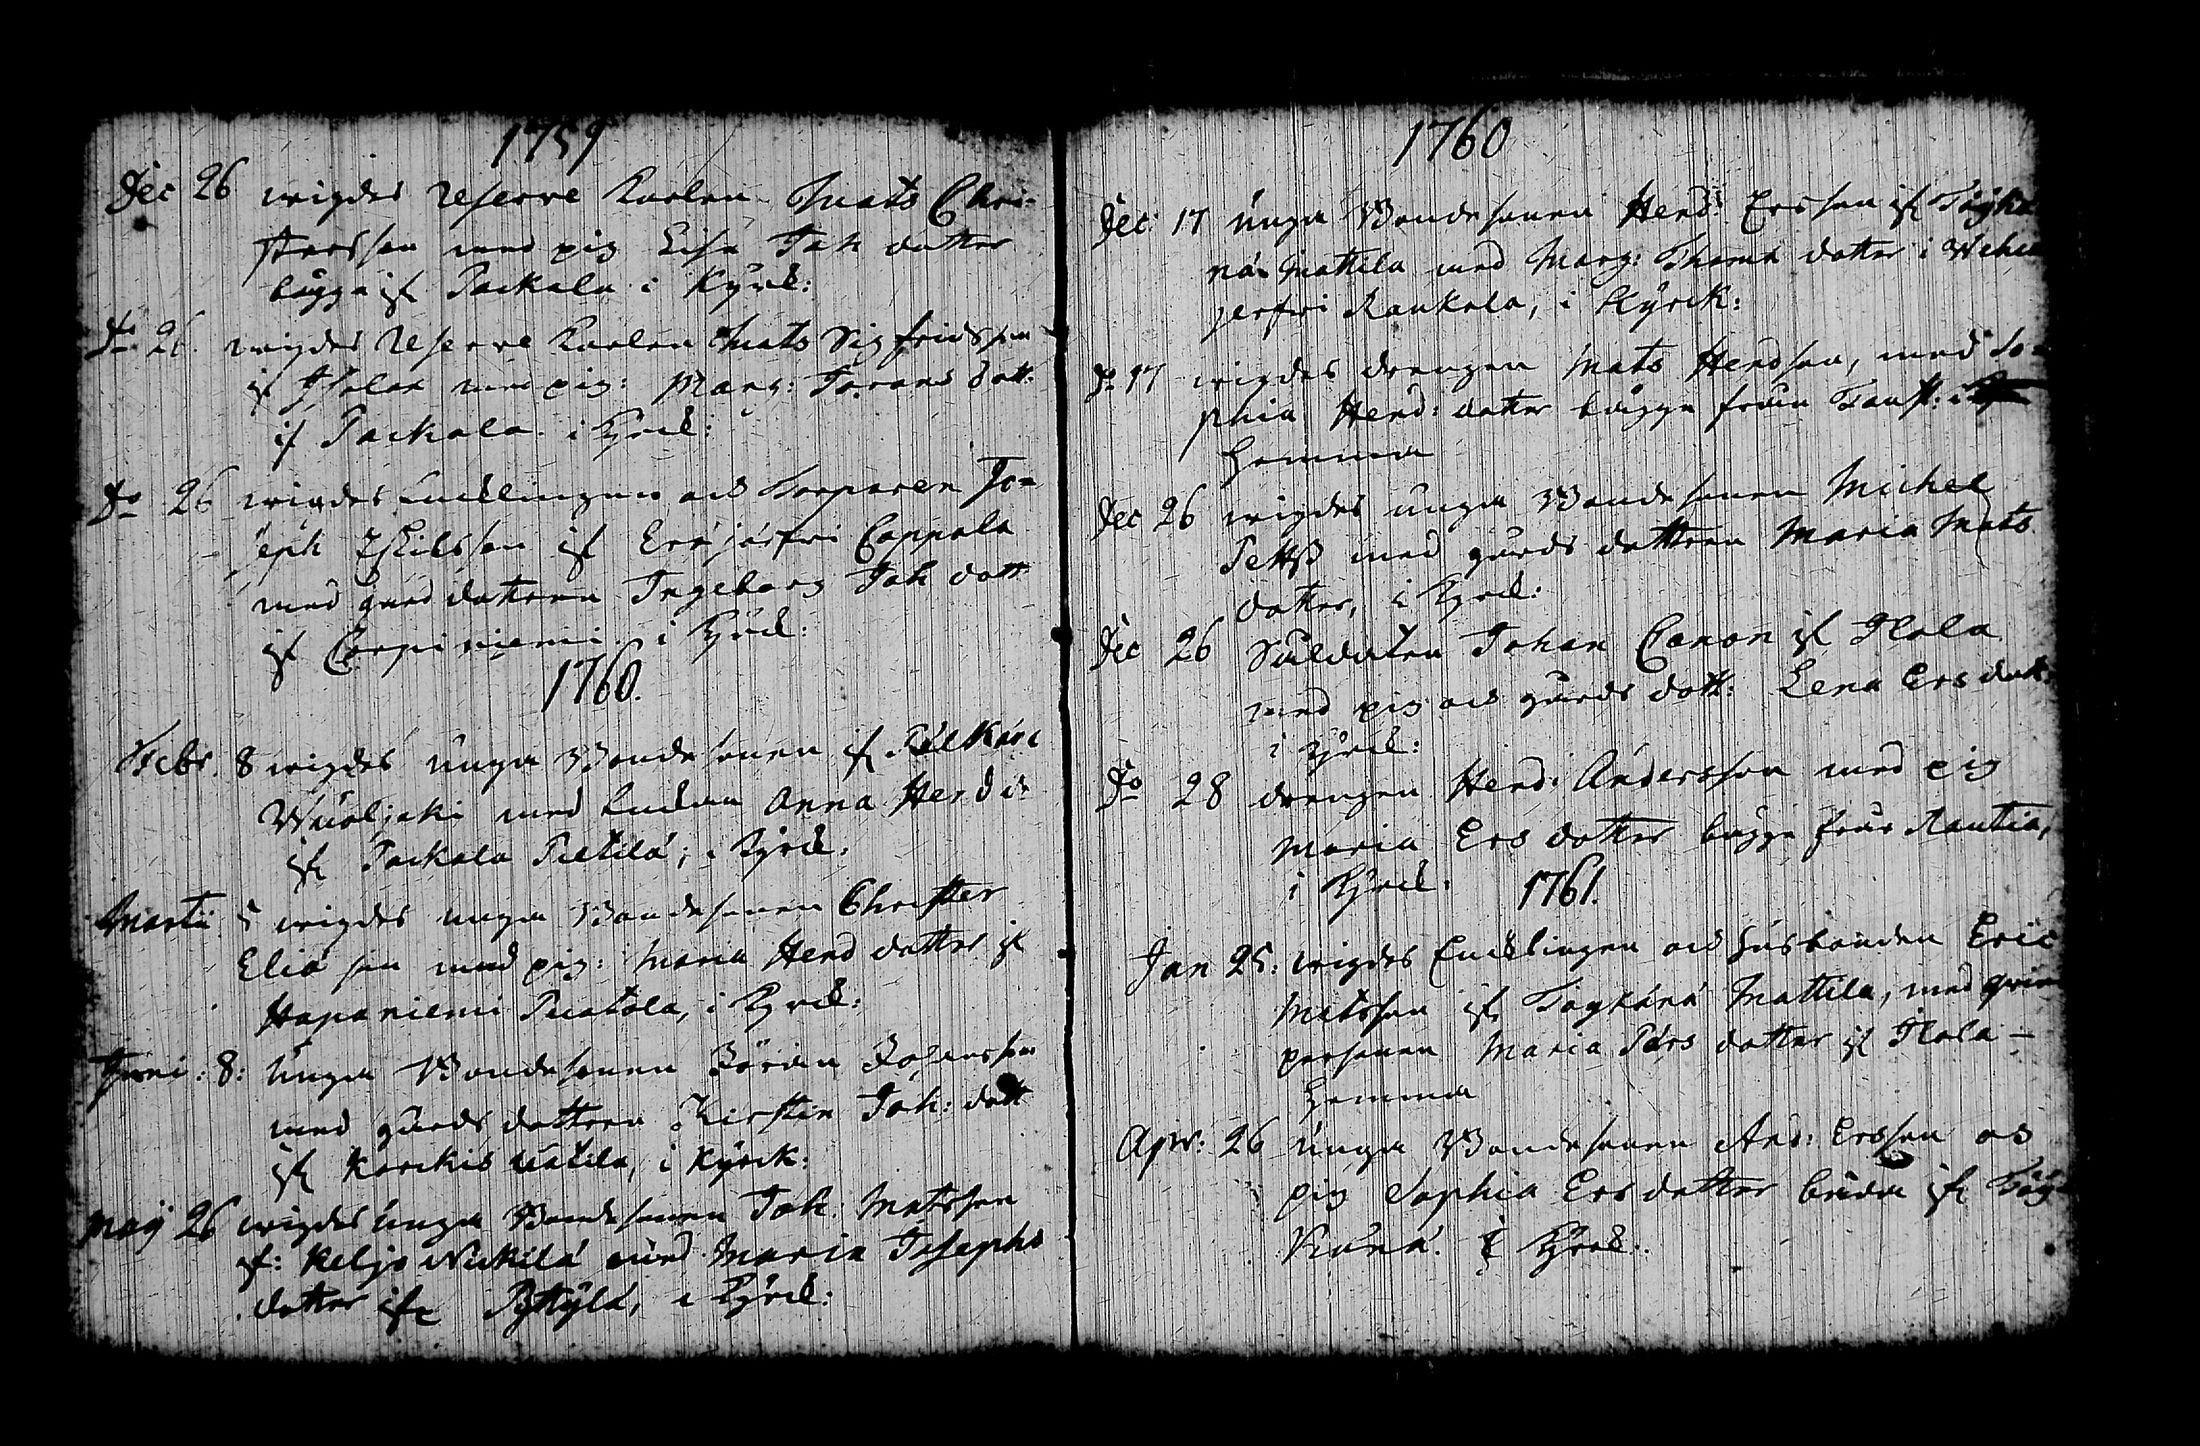 1759
Dec 26 wigdes reserve Karlen Mats Chri-
stersson med pig Lisa Joh dotter
bägge if Packala i Kyrck:
Do 26. wigdes reserve Karlen Mats Sigfridsson
if med pig: Marg: dott:
if Packala i Kyrck:
Do 26 wigdes Encklingen och Torparen Jo=
seph Eskilsson if Cappola
med gårdsdottren Ingeborg Joh dott
if Corpiniemi i Kyrck:
1760.
Febr. 8 wigdes unga Bondesonen if Pälkäne
med Enckan Anna Hend dr
if Packala Pietilä; i Kyrck.
Martii 5 wigdes unga Bondesonen Christer
Elia son med pig: Maria Hend dotter if
Hapaniemi Puatola, i Kyrck:
Juni: 8: Unga Bondesonen Jöran Johansson
med gårds dottren Kirstin Joh: dott
if Karckis i Kyrck:
Maij 26 wigdes unga Bondesonen Joh. Matsson
if: Keljo Nickilä med Maria Josephs
dotter if Pyttylä, i Kyrck:
1760
Dec: 17 Unga Bondesonen Hend: Ersson if Tåykä
nä Mattila med Marg: Thoma dotter i
Raukola, i Kyrck:
Do 17 wigdes drengen Mats Hendson, med So=
phia Hend: dotter bägge från
hemma
Dec 26 wigdes unga Bondesonen Michel
med gårds dottren Maria Mats
dotter, i Kyrck:
Dec 26 Suldaten Johan Canon if Ilola
med pig och gårds dott: Lena Ers dott:
i Kyrck:
Do 28 drengen Hend: Andersson med pig
Maria Ers dotter bägge från Rautia,
i Kyrck.
1761.
Jan 25: wigdes Encklingen och husbonden Eric
Matsson if Taykänä Mattila, med qvins
personen Maria Pärs dotter if Ilola -
hemma
Apr: 26 Unga Bondesonen And: Ersson och
pig Sophia Ers dotter båda if Töy-
känä. i Kyrck: